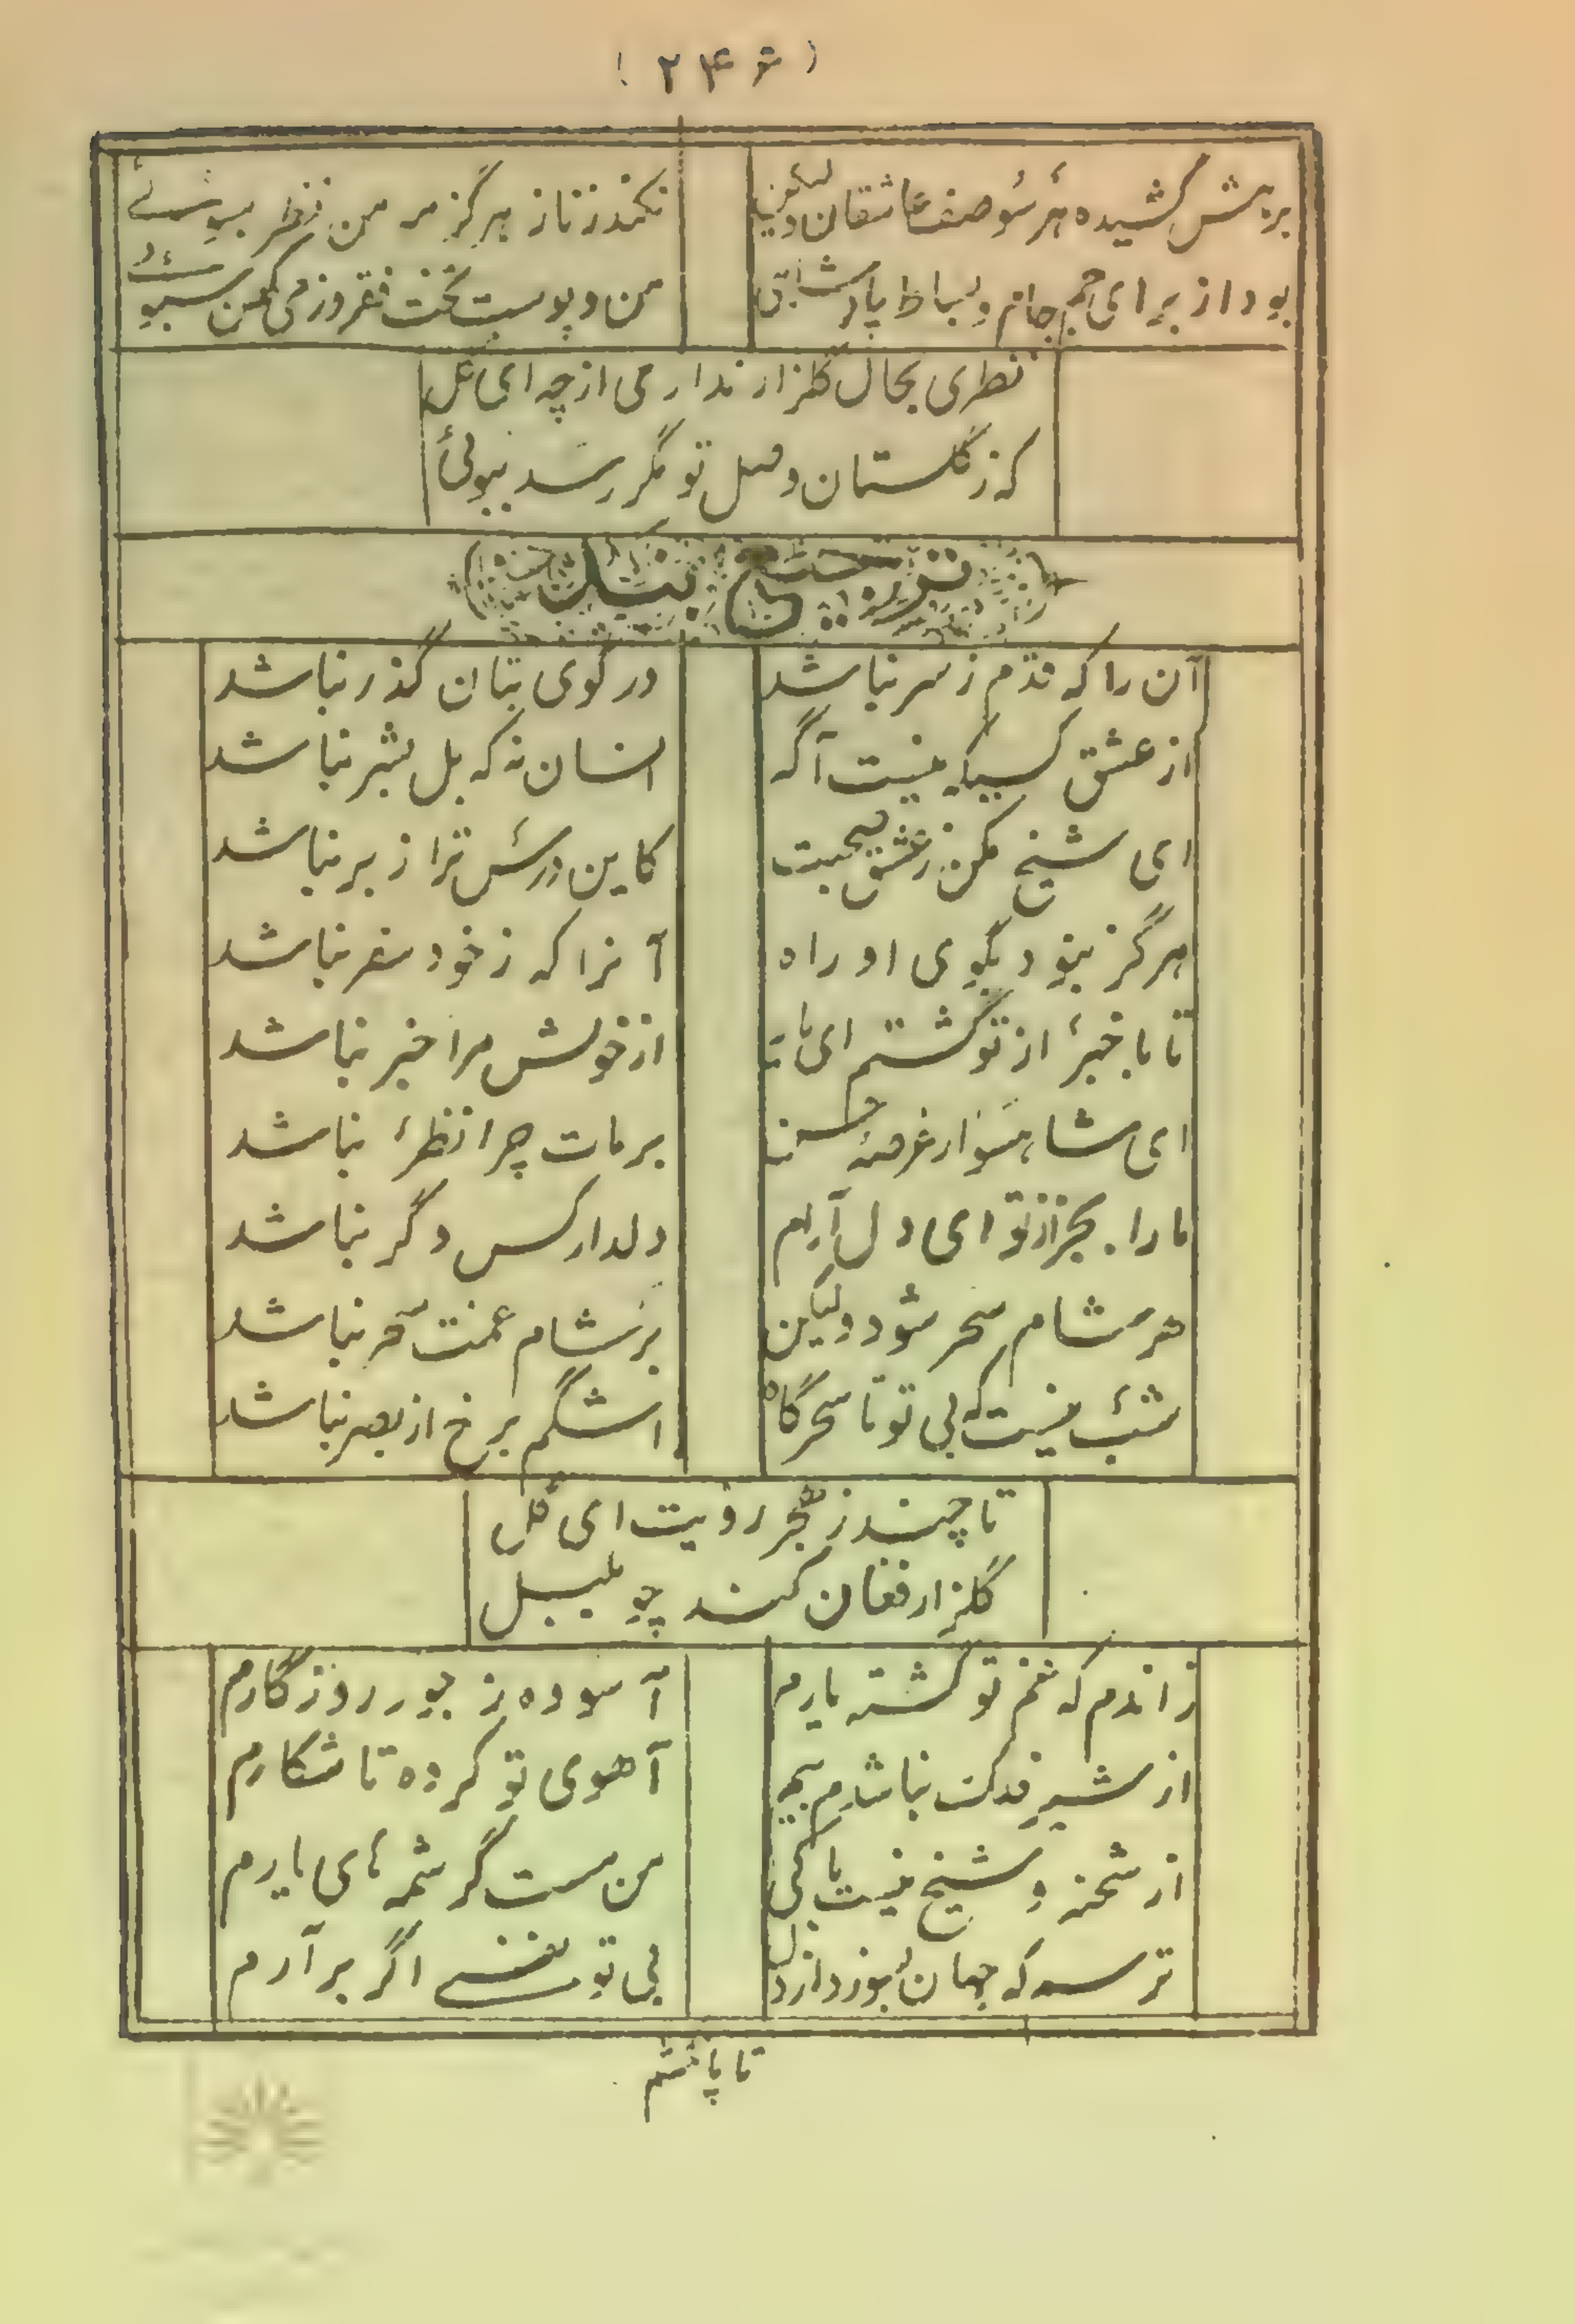 (۲۴۶)
برهش کشیده هر سو صف عاشقان ولیکن نکند ز ناز هرگز مر من نظر بسوئی
بود از برای جم جام و بساط پادشاهی من و پوست تخت فقر و ز می کهن سبوئی
نظری بحال گلزار نداری از چه ای گل
که ز گلستان وصل تو مگر رسد ببوئی
ترجیع بند
آن را که قدم ز سر نباشد در کوی بتان گذر نباشد
از عشق کسیکه نیست آگه انسان نه که بل بشر نباشد
ای شیخ مکن ز عشق صحبت کاین درس ترا ز بر نباشد
هرگز نبود بکوی او راه آنرا که ز خود سفر نباشد
تا با خبر از تو گشتم ای ماه از خویش مرا خبر نباشد
ای شاهسوار عرصه حسن بر مات چرا نظر نباشد
ما را بجز از تو ای دل آرام دلدار کس دگر نباشد
هر شام سحر شود ولیکن بر شام غمت سحر نباشد
شب نیست که بی تو تا سحرگاه اشگم برخ از بصر نباشد
تا چند ز هجر رویت ای گل
گلزار فغان کند چو بلبل
زاندم که غم تو گشته یارم آسوده ز جور روزگارم
از شیر فلک نباشدم بیم آهوی تو کرده تا شکارم
از شحنه و شیخ نیست باکی من مست کرشمه های یارم
ترسم که جهان بسوزد از دل بی تو نفسی اگر برآرم
تا پا